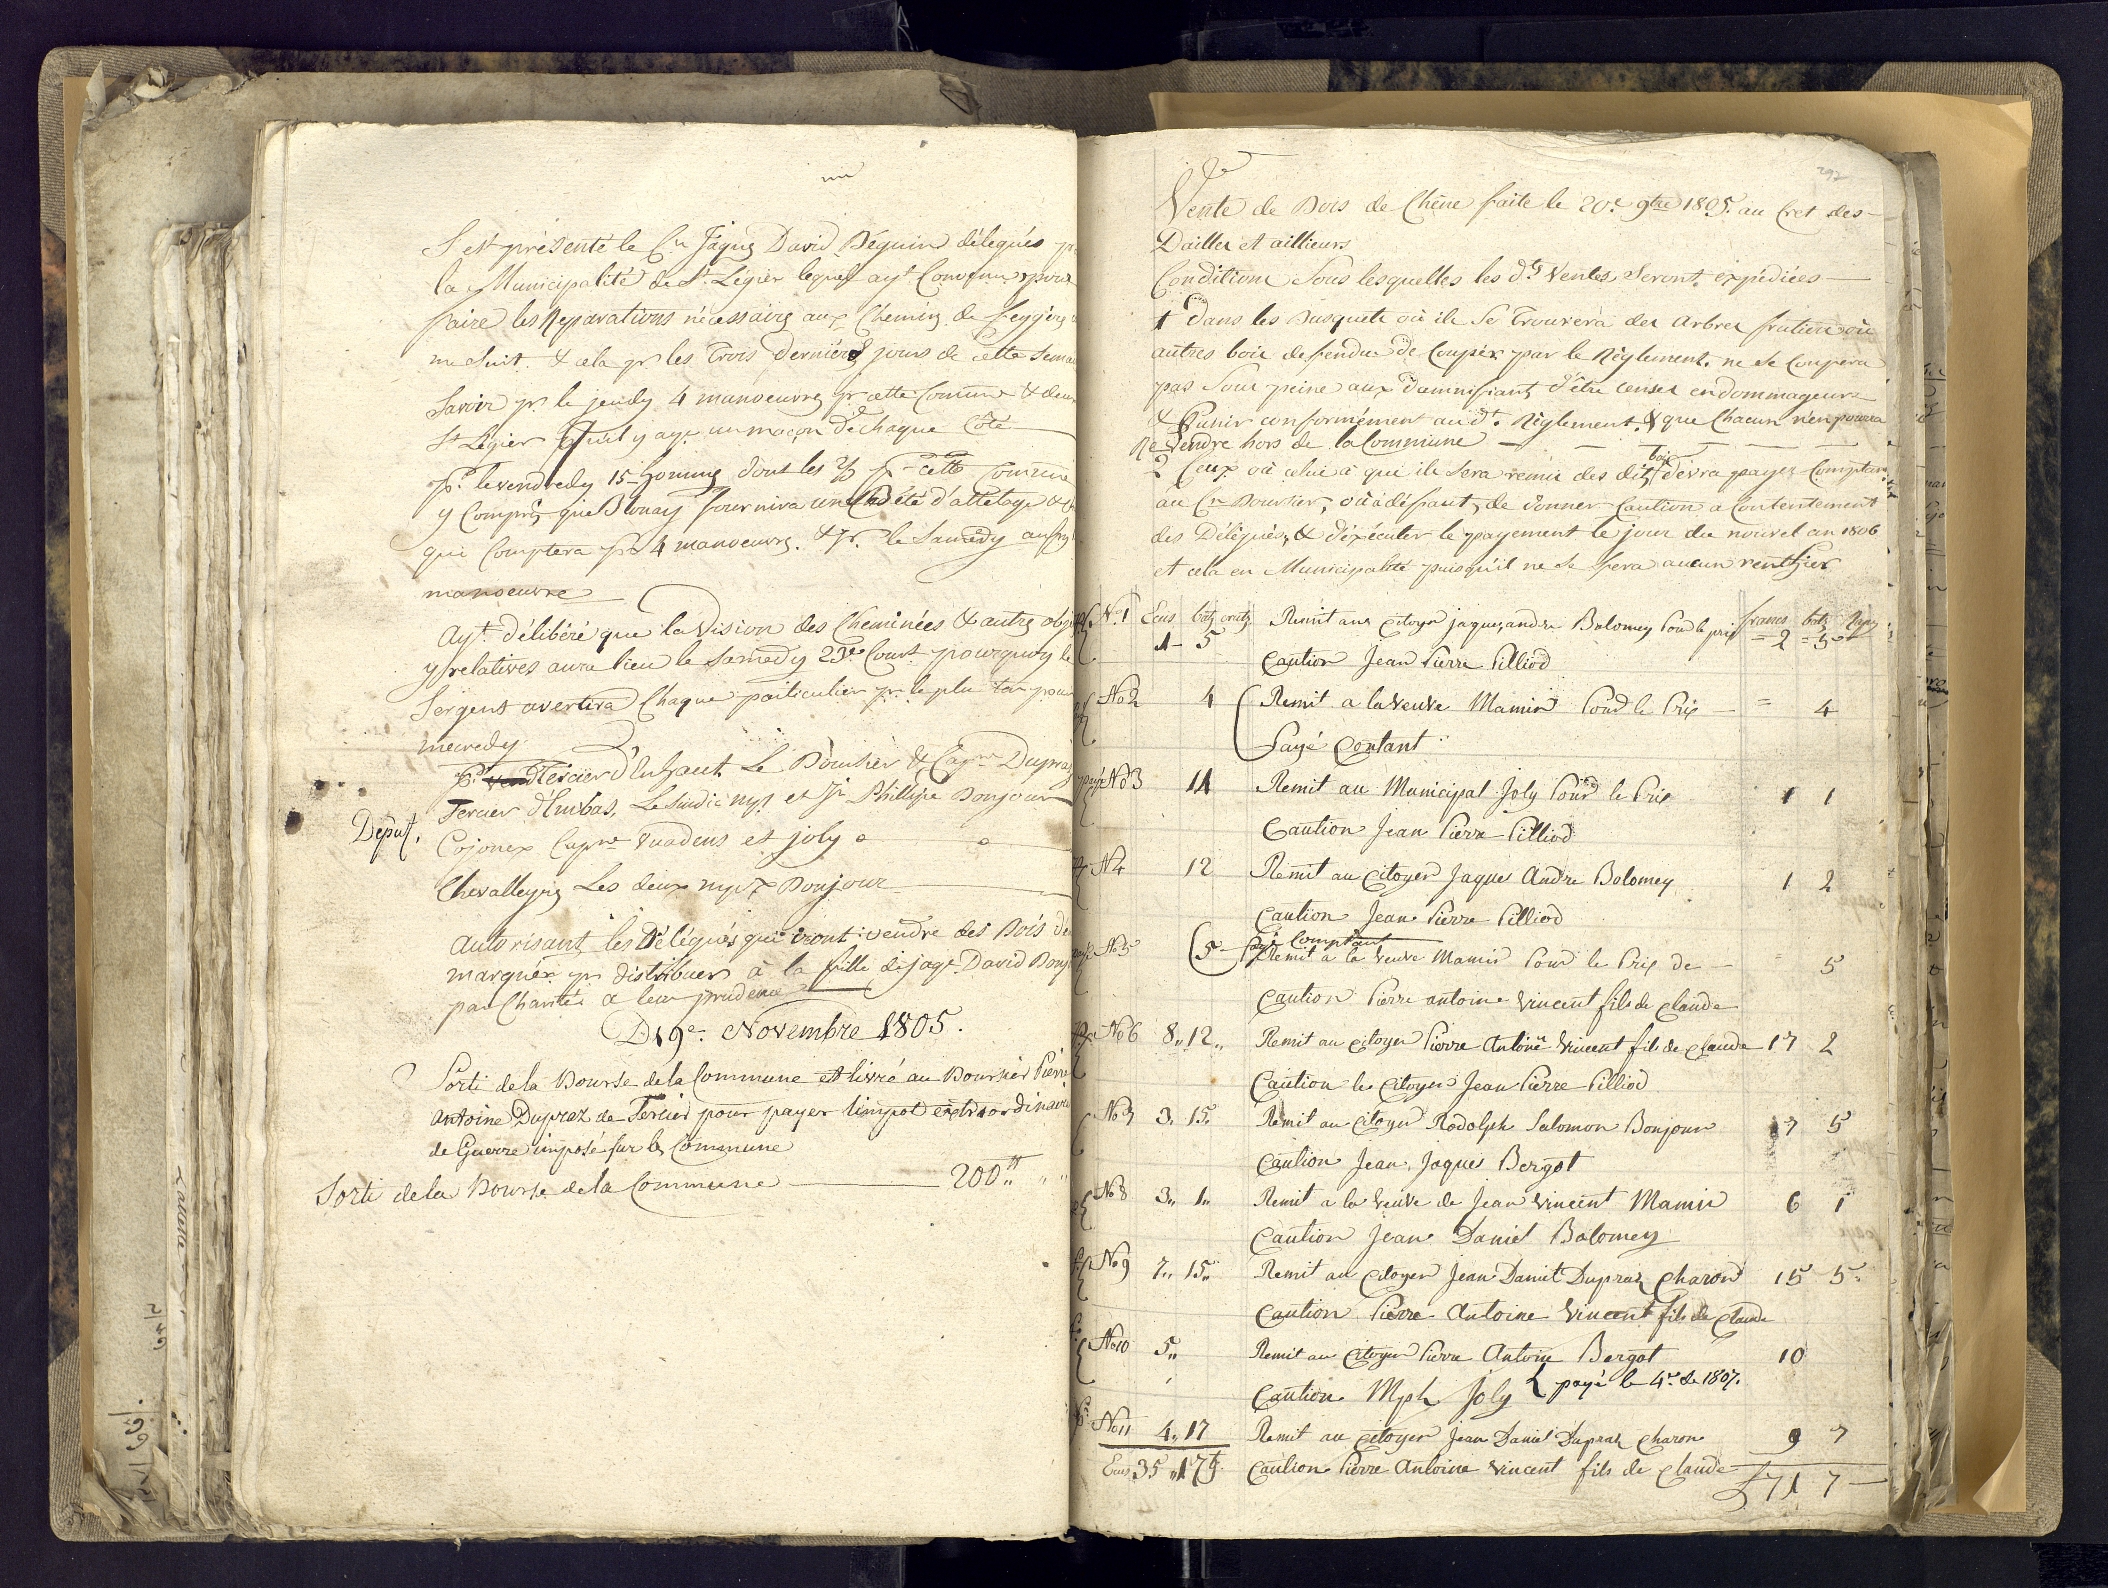 S'est présenté le Cn Jaques David Béguin délegués p
la Municipalité de St. Légier lequel ayt Convenu pour
faire les Reparations nécessaires aux Chemins de feygires
me Suit. & cela pr. les Trois derniéres jours de cette Sema
Savoir pr. le jeudy 4 manoeuvres pr cette Comune & deux
St Légier qu'il y aye un maçon de chaque Côté
Pr. le vendredy 15 hommes dont les 2/3 pr cette Commune
y Compris que Blonay fournira un Coté d'attelage &
qui Comptera pr 4 manoeuvre. & pr. le Samedy
manoeuvre
Ayt. délibéré que la Vision des Cheminées & autres obje
y relatives aura lieu le Samedy 23e Court pourquoy le
Sergent avertira Chaque particulier pr. le plu tar pour
mecredy
Pr. Tercier d'Enhaut Le Boursier & Capne Dupraz
Tercier d'Embas, Le Sindic mp. et Jn Phillipe Bonjour
Deput.
Cojonex Capne Vuadens et joly
Chevalleyres Les deux mpx Bonjour
Autorisant les Délégués qui iront vendre des Bois de
marquer pr distribuer à la fille de jaqe. David Bonj
par Charité a leur prudence
D 19e. Novembre 1805.
Sorti de la Bourse de la Commune et livré au Boursier Pierre
Antoine Dupraz de Tercier pour payer l'impot extraordinaire
de Guerre imposé sur les Commune
Sorti de la Bourse de la Commune 200 ''
292
Vente de Bois de Chêne faite le 20e 9bre 1805. au Cret des
Dailles et aillieurs
Conditions Sous lesquelles les dts Ventes Seront expédiées
1 dans les Busquets où ile Se Trouvera des Arbres frutiers où
autres bois defendue de Couper par le Réglement. ne Se Coupera
pas Sous peine aux damnifiant d'être censer endommageurs
& Punir conformément au dt. Réglement. & que Chacun n'en pourra
Revendre hors de la Commune
2 Ceux où celui à qui ile Sera remis des dits bois devra payer Comptan
au Cn Boursier, où à défaut, de donner Caution a Contentement
des Délégués, & d'éxécuter le payement le jour du nouvel an 1806
et cela en Municipalité puisqu'il ne Se fera aucun
No. 1 Ecus batz crutz Remit aux Citoyen jaques andre Bolomey Pour le prix francs batz Rap
1- 5 = 2 - 5
Caution Jean Pierre Pilliod
No 2 4 Remit a la Veuve Mamin Pour le Prix = 4
Payé Contant
No 3 11 Remit au Municipal Joly Pour le Prix 1 1
Caution Jean Pierre Pilliod
N 4 12 Remit au Citoyen Jaques Andre Bolomey 1 2
Caution Jean Pierre Pilliod
Payé Comptant
No 5 5 Remit a la Veuve Mamin Pour le Prix de 5
Caution Pierre antoine Vincent fils de Claude
No 6 8,, 12,, Remit au Citoyen Pierre Antoine Vincent fils de Claude 17 2
Caution le Citoyen Jean Pierre Pilliod
No 7 3,, 15,, Remit au Citoyen Rodolph Salomon Bonjour 7 5
Caution Jean Jaques Bergot
No 8 3,, 1,, Remit a la Veuve de Jean Vincent Mamin 6 1
Caution Jean Daniel Bolomey
No 9 7,, 15,, Remit au Citoyen Jean Daniel Dupraz Charon 15 5
Caution Pierre Antoine Vincent fils de Claude
No 10 5,, Remit au Citoyen Pierre Antoine Bergot 10
Caution Mph Joly payé le 4e. de 1807.
No 11 4,, 17 Remit au Citoyen Jean Daniel Dupraz Charon 9 7
Ecus 35 ,, 17 Caution Pierre Antoine Vincent fils de Claude
L 71 7